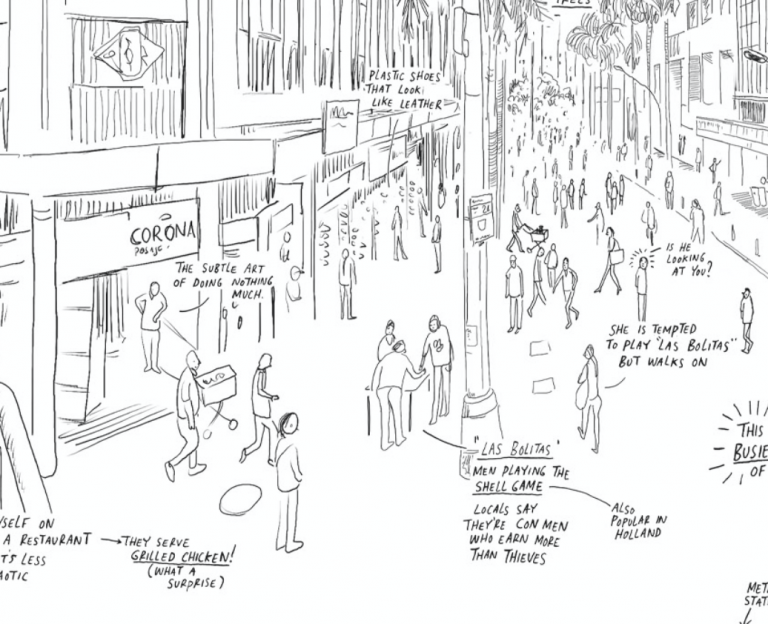 TREES
PLASTIC SHOES
THAT LOOK
LIKE LEATHER
CORONA
pasaje
THE SUBTLE ART
OF DOING NOTHING
MUCH.
IS HE
LOOKING
AT YOU?
SHE IS TEMPTED
TO PLAY "LAS BOLITAS"
BUT WALKS ON
THIS
BUSIE
OF
"LAS BOLITAS"
MEN PLAYING THE
SHELL GAME
LOCALS SAY
THEY'RE CON MEN
WHO EARN MORE
THAN THIEVES
ALSO
POPULAR IN
HOLLAND
YSELF ON
A RESTAURANT
T'S LESS
AOTIC
THEY SERVE
GRILLED CHICKEN!
(WHAT A
SURPRISE)
MET
STAT